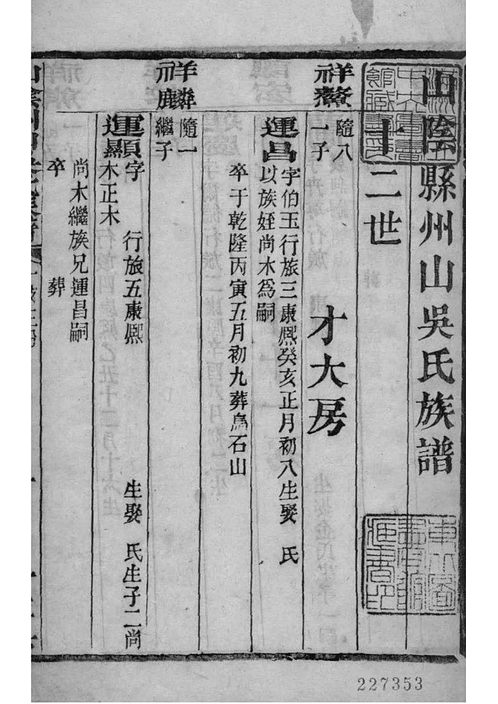 山陰縣州山吳氏族譜
十二世
才大房
祥鰲
隨入
一子
運昌
字伯玉行旅三康熈癸亥正月初八生娶 氏
以族姪尚木為嗣
卒于乾隆丙寅五月初九葬鳥石山
祥麟
隨一
祥鹿
繼子
運顯
字 行旅五康熈 生娶 氏生子二尚
木正木
尚木繼族兄運昌嗣
卒 葬
227353